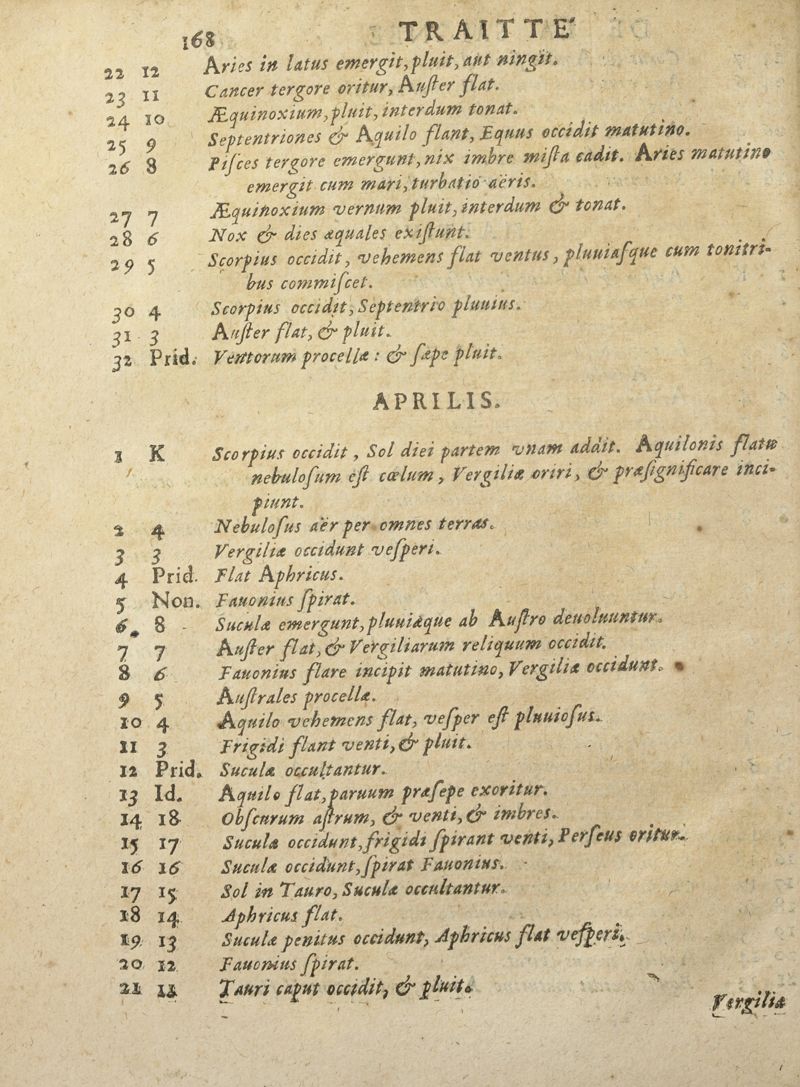 168 TRAITTE'
22 12 Aries in latus emergit, pluit, aut ningit.
23 11 Cancer tergore oritur, Auſter flat.
24 10 Æquinoxium, pluit, interdum tonat.
25 9 Septentriones & Aquilo flant, Equus occidit matutino.
26 8 Piſces tergore emergunt, nix imbre miſta cadit. Aries matutino
emergit cum mari, turbatio aëris.
27 7 Æquinoxium vernum pluit, interdum & tonat.
28 6 Nox & dies æquales exiſtunt.
29 5 Scorpius occidit, vehemens flat ventus, pluuiaſque cum tonitri-
bus commiſcet.
30 4 Scorpius occidit, Septentrio pluuius.
31 3 Auſter flat, & pluit.
32 Prid. Ventorum procellæ : & ſæpe pluit.
APRILIS.
1 K Scorpius occidit, Sol diei partem vnam addit. Aquilonis flatu
nebuloſum eſt cœlum, Vergiliæ oriri, & præſignificare inci-
piunt.
2 4 Nebuloſus aër per omnes terras.
3 3 Vergiliæ occidunt veſperi.
4 Prid. Flat Aphricus.
5 Non. Fauonius ſpirat.
6 8 Suculæ emergunt, pluuiæque ab Auſtro deuoluuntur.
7 7 Auſter flat, & Vergiliarum reliquum occidit.
8 6 Fauonius flare incipit matutino, Vergiliæ occidunt.
9 5 Auſtrales procellæ.
10 4 Aquilo vehemens flat, veſper eſt pluuioſus.
11 3 Frigidi flant venti, & pluit.
12 Prid. Suculæ occultantur.
13 Id. Aquilo flat, paruum præſepe exoritur.
14 18 Obſcurum aſtrum, & venti, & imbres.
15 17 Suculæ occidunt, frigidi ſpirant venti, Perſeus oritur.
16 16 Suculæ occidunt, ſpirat Fauonius.
17 15 Sol in Tauro, Suculæ occultantur.
18 14 Aphricus flat.
19 13 Suculæ penitus occidunt, Aphricus flat veſperi.
20 12 Fauonius ſpirat.
21 11 Tauri caput occidit, & pluit.
Vergiliæ